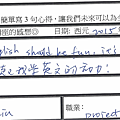 簡單寫3句心得，讓我們未來可以為
程的感想☺ 日期：西元 2015
lish should be fun, it's
是我學英文的動力！
職業：
project